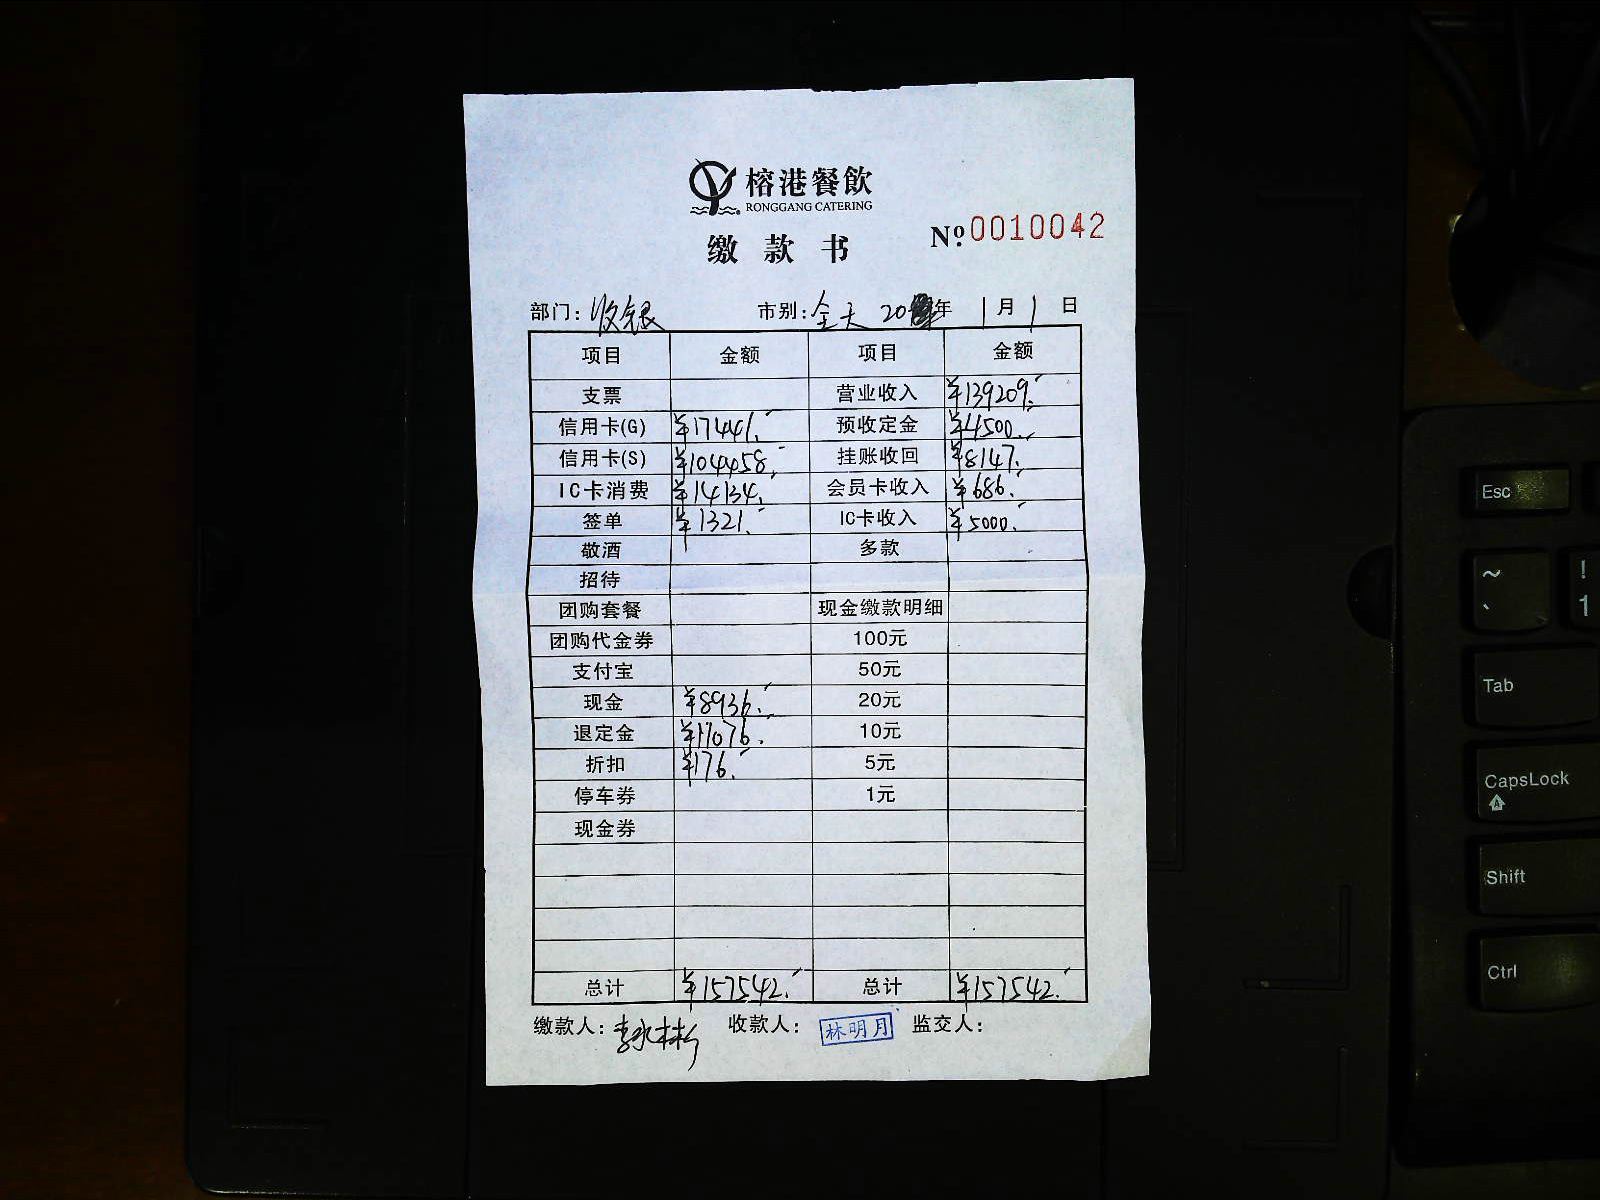 榕港餐飲
RONGGANG CATERING
缴款书 Nº 0010042
部门：收银 市别：全天 20 年 1月1日
项目 金额 项目 金额
支票 营业收入 ¥139209.
信用卡(G) ¥17441. 预收定金 ¥4500.
信用卡(S) ¥104458. 挂账收回 ¥8147.
IC卡消费 ¥14134. 会员卡收入 ¥686.
签单 ¥1321. IC卡收入 ¥5000.
敬酒 多款
招待
团购套餐 现金缴款明细
团购代金券 100元
支付宝 50元
现金 ¥8936. 20元
退定金 ¥11076. 10元
折扣 ¥176. 5元
停车券 1元
现金券
总计 ¥157542. 总计 ¥157542.
缴款人：李永彬 收款人：林明月 监交人：
Esc
~ !
` 1
Tab
CapsLock
A
Shift
Ctrl